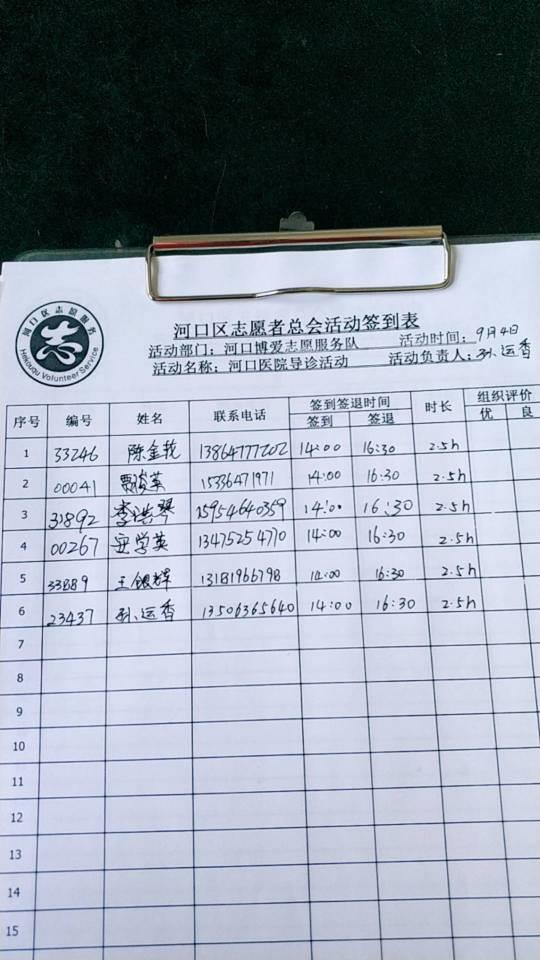 河口区志愿服务
志
Hekouqu Volunteer Service
河口区志愿者总会活动签到表
活动部门：河口博爱志愿服务队 活动时间：9月4日
活动名称：河口医院导诊活动 活动负责人：孙运香
序号 编号 姓名 联系电话 签到签退时间 时长 组织评价
签到 签退 优 良
1 33246 陈金 13864777202 14:00 16:30 2.5h
2 00041 英 15336471971 14:00 16:30 2.5h
3 31892 李洪琴 15954640359 14:00 16:30 2.5h
4 00267 安学英 13475254770 14:00 16:30 2.5h
5 王银辉 13181966798 14:00 16:30 2.5h
6 23437 孙运香 13506365640 14:00 16:30 2.5h
7
8
9
10
11
12
13
14
15